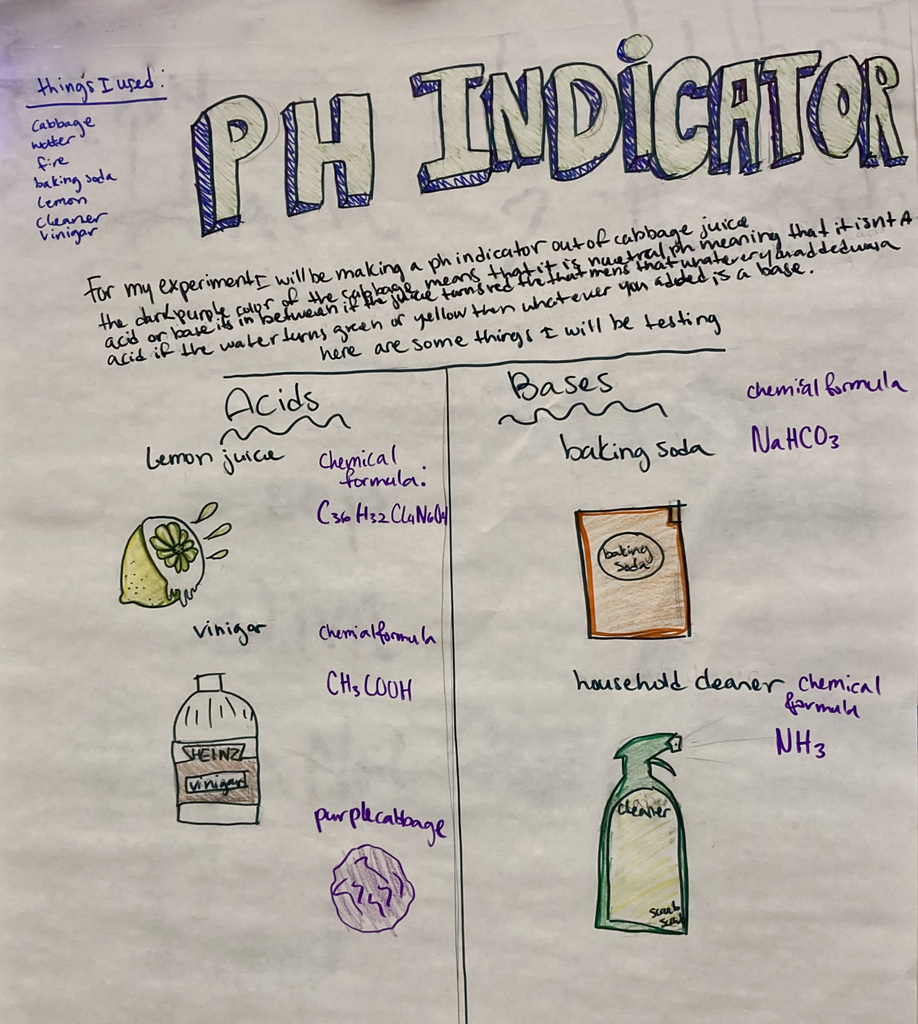 things I used:
cabbage
water
fire
baking soda
lemon
cleaner
vinigar
PH INDiCATOR
For my experiment I will be making a ph indicator out of cabbage juice
the dark purple color of the cabbage means that it is nuetral ph meaning that it isnt A
acid or base its in between if the juice turns red the that mens that whatever you added was a
acid if the water turns green or yellow then whatever you added is a base.
here are some things I will be testing
Acids
lemon juice
chemical
formula:
C36H32CL4N6O4
vinigar
chemialformula
CH3COOH
HEINZ
vinigar
purple cabbage
Bases
baking soda
chemialformula
NaHCO3
baking
soda
household cleaner
chemical
formula
NH3
cleaner
scrub